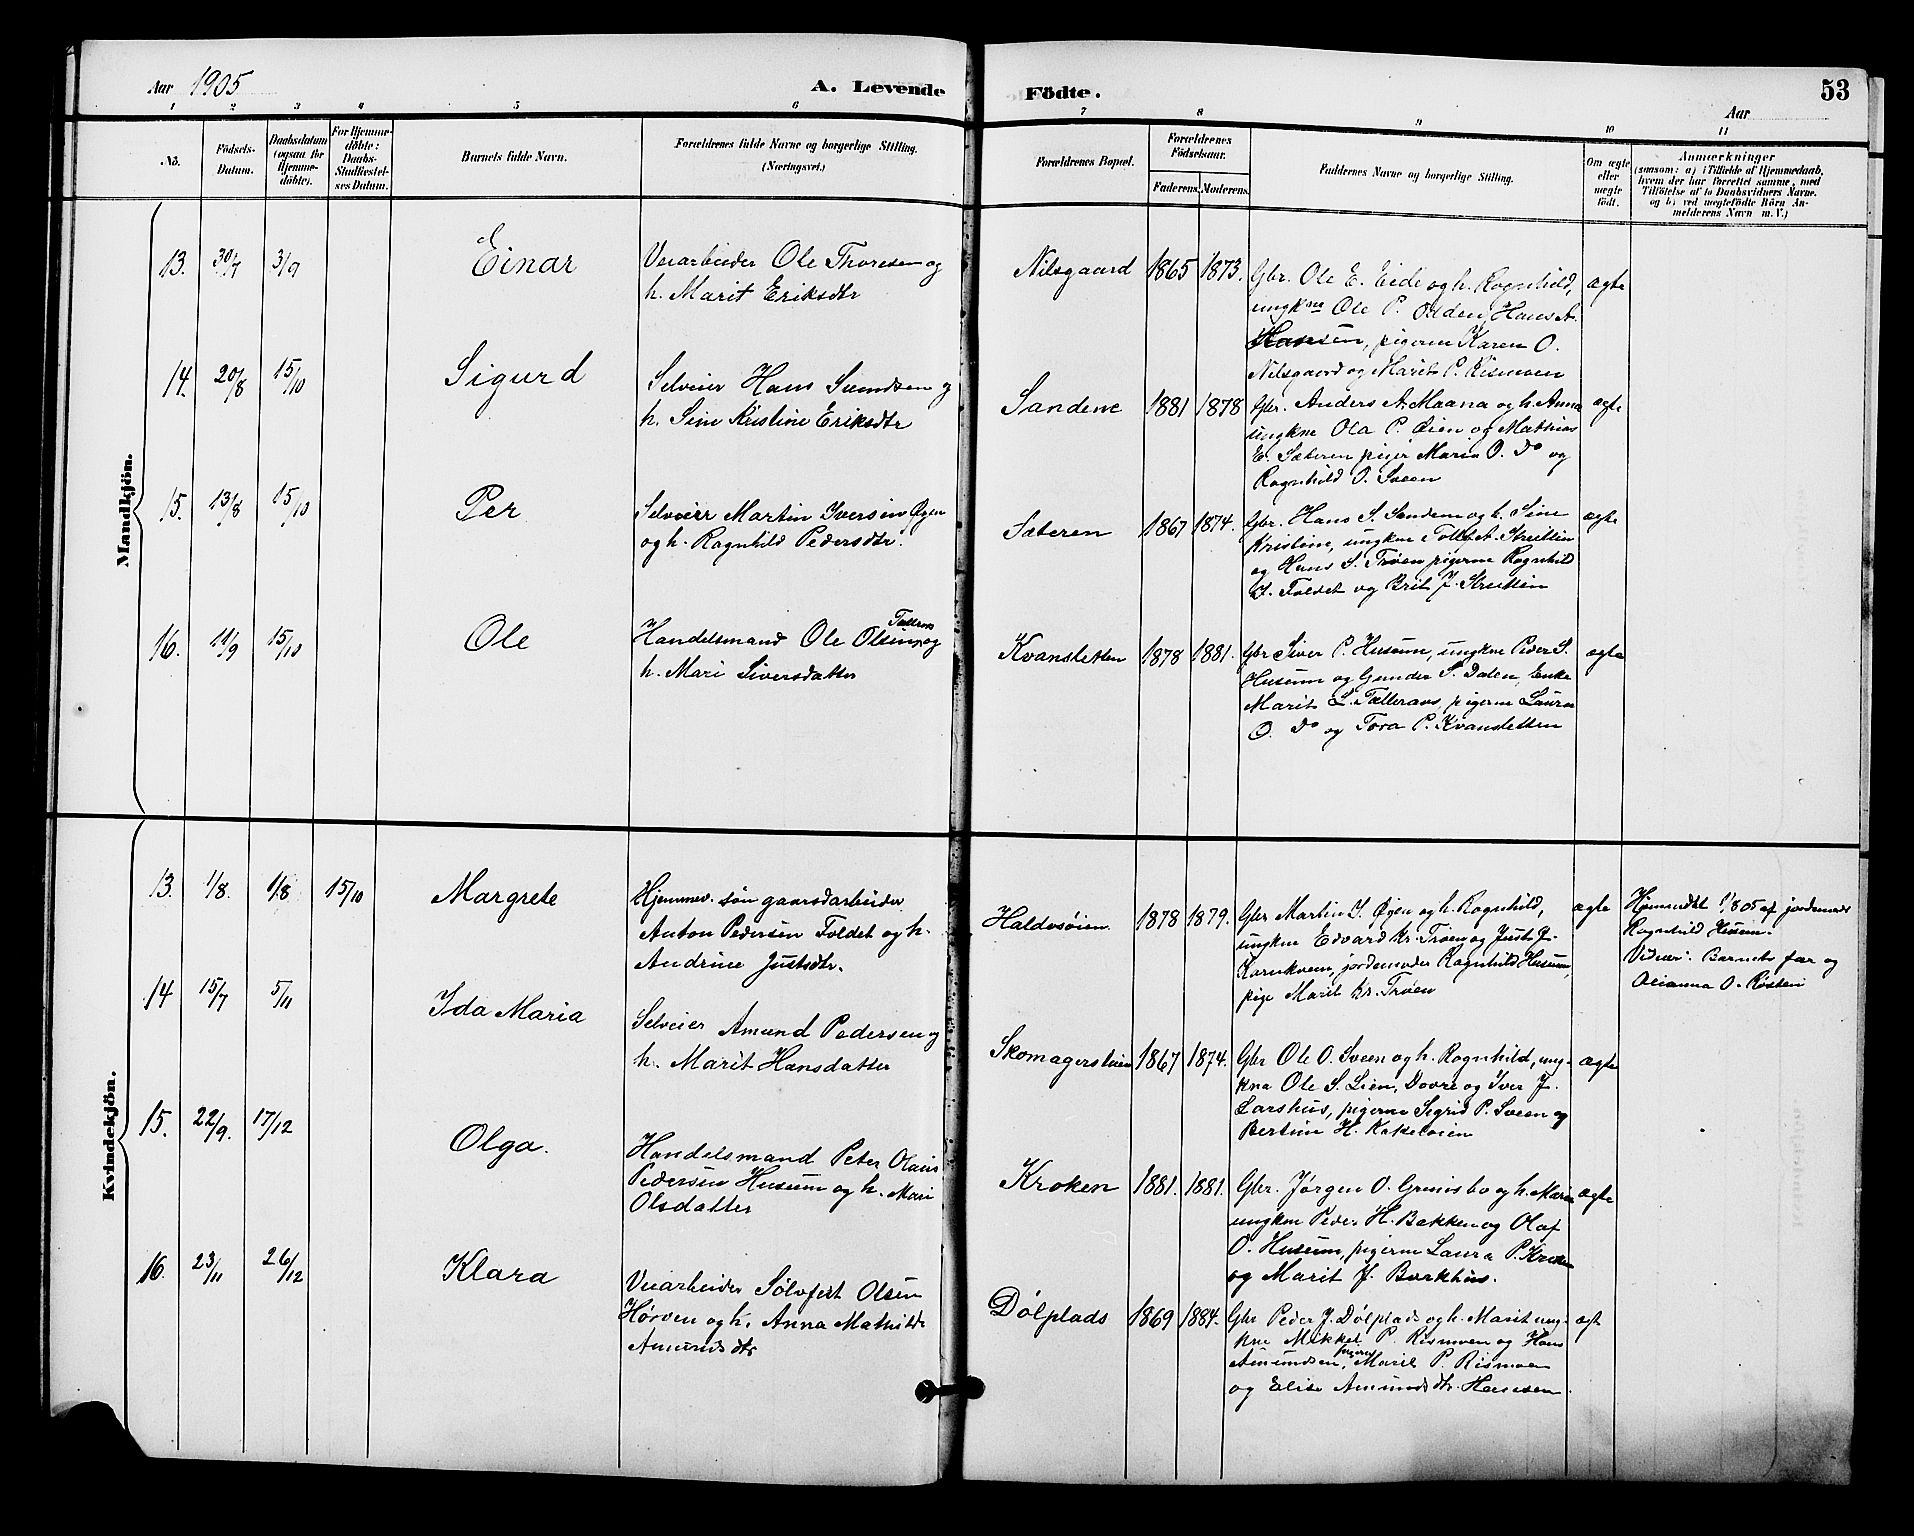 Aar 1905
A. Levende
Födte.
53
Aar
1 2 3 4 5 6 7 8 9 10 11
No.
Födsels-
Datum.
Daabsdatum
(ogsaa for
Hjemme-
döbte).
For Hjemme-
döbte:
Daabs-
Stadfæstel-
ses Datum.
Barnets fulde Navn.
Forældrenes fulde Navne og borgerlige Stilling.
(Næringsvei.)
Forældrenes Bopæl.
Forældrenes
Födselsaar.
Faderens. Moderens.
Faddernes Navne og borgerlige Stilling.
Om ægte
eller
uægte
födt.
Anmærkninger
(saasom: a) i Tilfælde af Hjemmedaab,
hvem der har forrettet samme, med
Tilföielse af to Daabsvidners Navne.
og b) ved uægtefödte Börn An-
melderens Navn m. V.)
Mandkjön.
13. 30/7 3/9 Einar
Veiarbeider Ole Thoresen og
h. Marit Eriksdtr
Nilsgaard 1865 1873.
Gbr. Ole E. Eide og h. Ragnhild,
ungkne Ole P. Olden, Hans A.
Hansen, pigerne Karen O.
Nilsgaard og Marit P. Rismoen
ægte
14. 20/8 15/10 Sigurd
Selveier Hans Svendsen og
h. Sine Kristine Eriksdtr
Sandene 1881 1878
Gbr. Anders A. Maana og h. Anna
ungkne Ola P. Øien og Mathias
E. Sæteren piger Maria O. Do og
Ragnhild O. Sveen
ægte
15. 13/8 15/10 Per
Selveier Martin Iversen Øyen
og h. Ragnhild Pedersdtr.
Sæteren 1867 1874.
Gbr. Hans S. Sandene og h. Sine
Kristine, ungkne Tollef A. Skrettin
og Hans S. Trøen pigerne Ragnhild
I. Foldet og Brit J. Skrettin
ægte
16. 11/9 15/10 Ole
Tælleraas
Handelsmand Ole Olsen og
h. Mari Siversdatter
Kvansletten 1878 1881.
Gbr Siver P. Husum, ungkne Peder S.
Husum og Gunder S. Dalen, Enke
Marit L. Tælleraas, pigerne Laura
O. Do og Tora P. Kvansletten
ægte
Kvindekjön.
13. 1/8. 1/8 15/10 Margrete
Hjemmev. søn gaardsarbeider
Anton Pedersen Foldet og h.
Andrine Justsdtr.
Haldosøien 1878 1879.
Gbr Martin I. Øyen og h. Ragnhild,
ungkne Edvard Kr. Trøen og Just J.
Kornkveen, jordemoder Ragnhild Husum,
pige Marit Kr. Trøen
ægte
Hjemmedøbt 1/8 05 af jordemoder
Ragnhild Husum.
Vidner: Barnets far og
Olianna O. Røsten
14 15/7 5/11 Ida Maria
Selveier Amund Pedersen og
h. Marit Hansdatter
Skomagersteien 1867 1874.
Gbr Ole O. Sveen og h. Ragnhild, ung-
kna Ole S. Lien, Dovre og Iver J.
Larshus, pigerne Sigrid P. Sveen og
Bertine H. Kakelveien
ægte
15. 22/9. 17/12 Olga.
Handelsmand Peter Olaus
Pedersen Husum og h. Mari
Olsdatter
Kroken 1881. 1881.
Gbr. Jørgen O. Grimsbo og h. Marie
ungkne Peder H. Bakken og Olaf
O. Husum, pigerne Laura P. Kroken
og Marit J. Borkhus.
ægte
16. 23/11 26/12 Klara
Veiarbeider Sølvfest Olsen
Hørven og h. Anna Mathilde
Amundsdtr
Dølplads 1869 1884.
Gbr Peder J. Dølplads og h. Marit ung-
kne Mikkel P. Rismoen og Hans
Amundsen, pigerne Marit P. Rismoen
og Elise Amundsdtr. Hansen
ægt